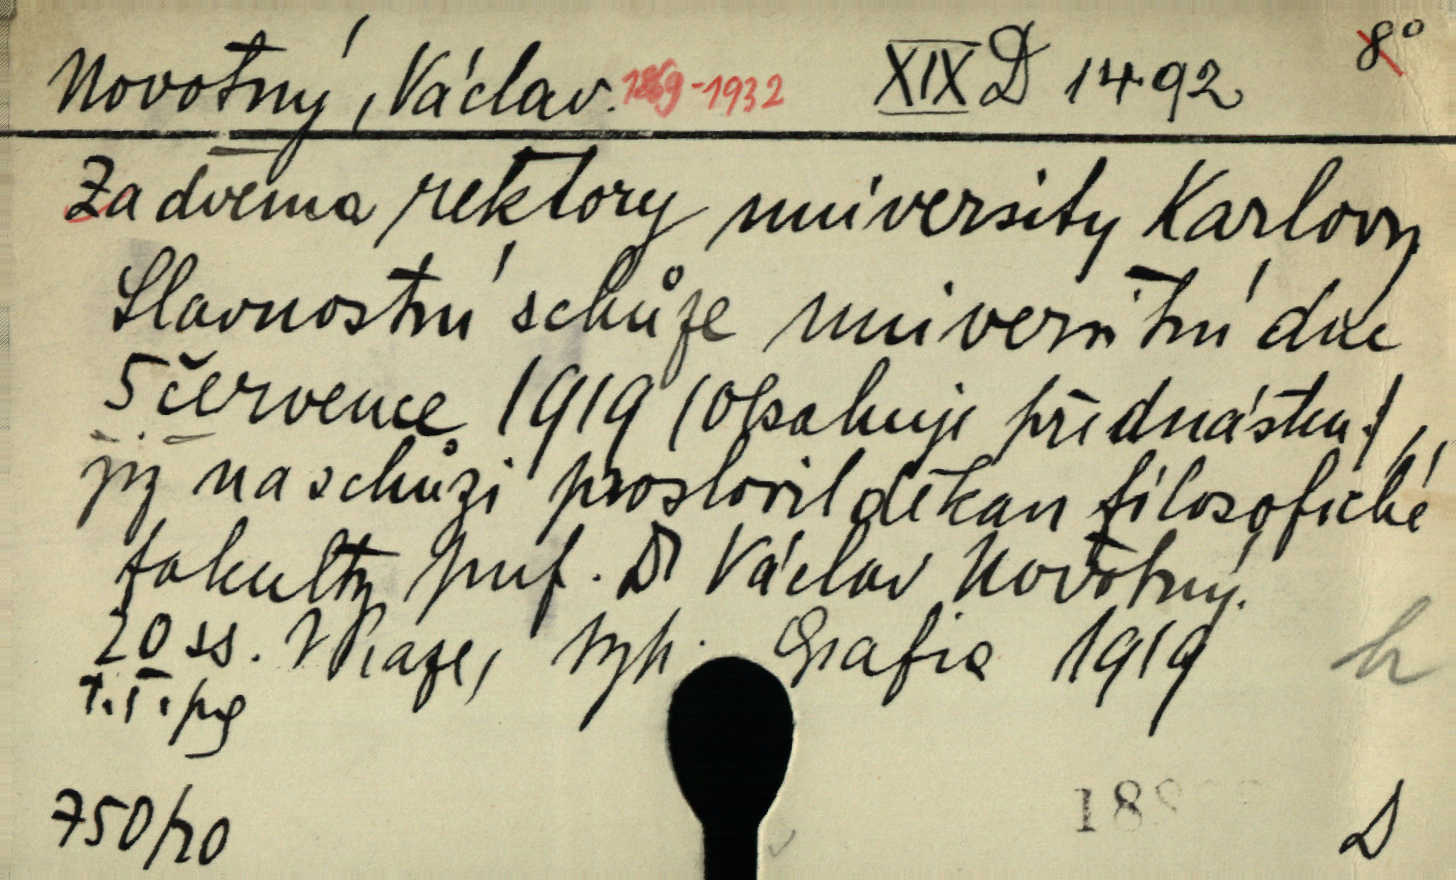 Novotný, Václav. 1869-1932 XIX D 1492 8°
Za dvěma rektory university Karlovy
Slavnostní schůze universitní dne
5 července 1919 (Obsahuje přednášku),
již na schůzi proslovil děkan filosofické
fakulty prof. Dr Václav Novotný.
20 ss. V Praze, Typ. Grafia 1919
750/20
D